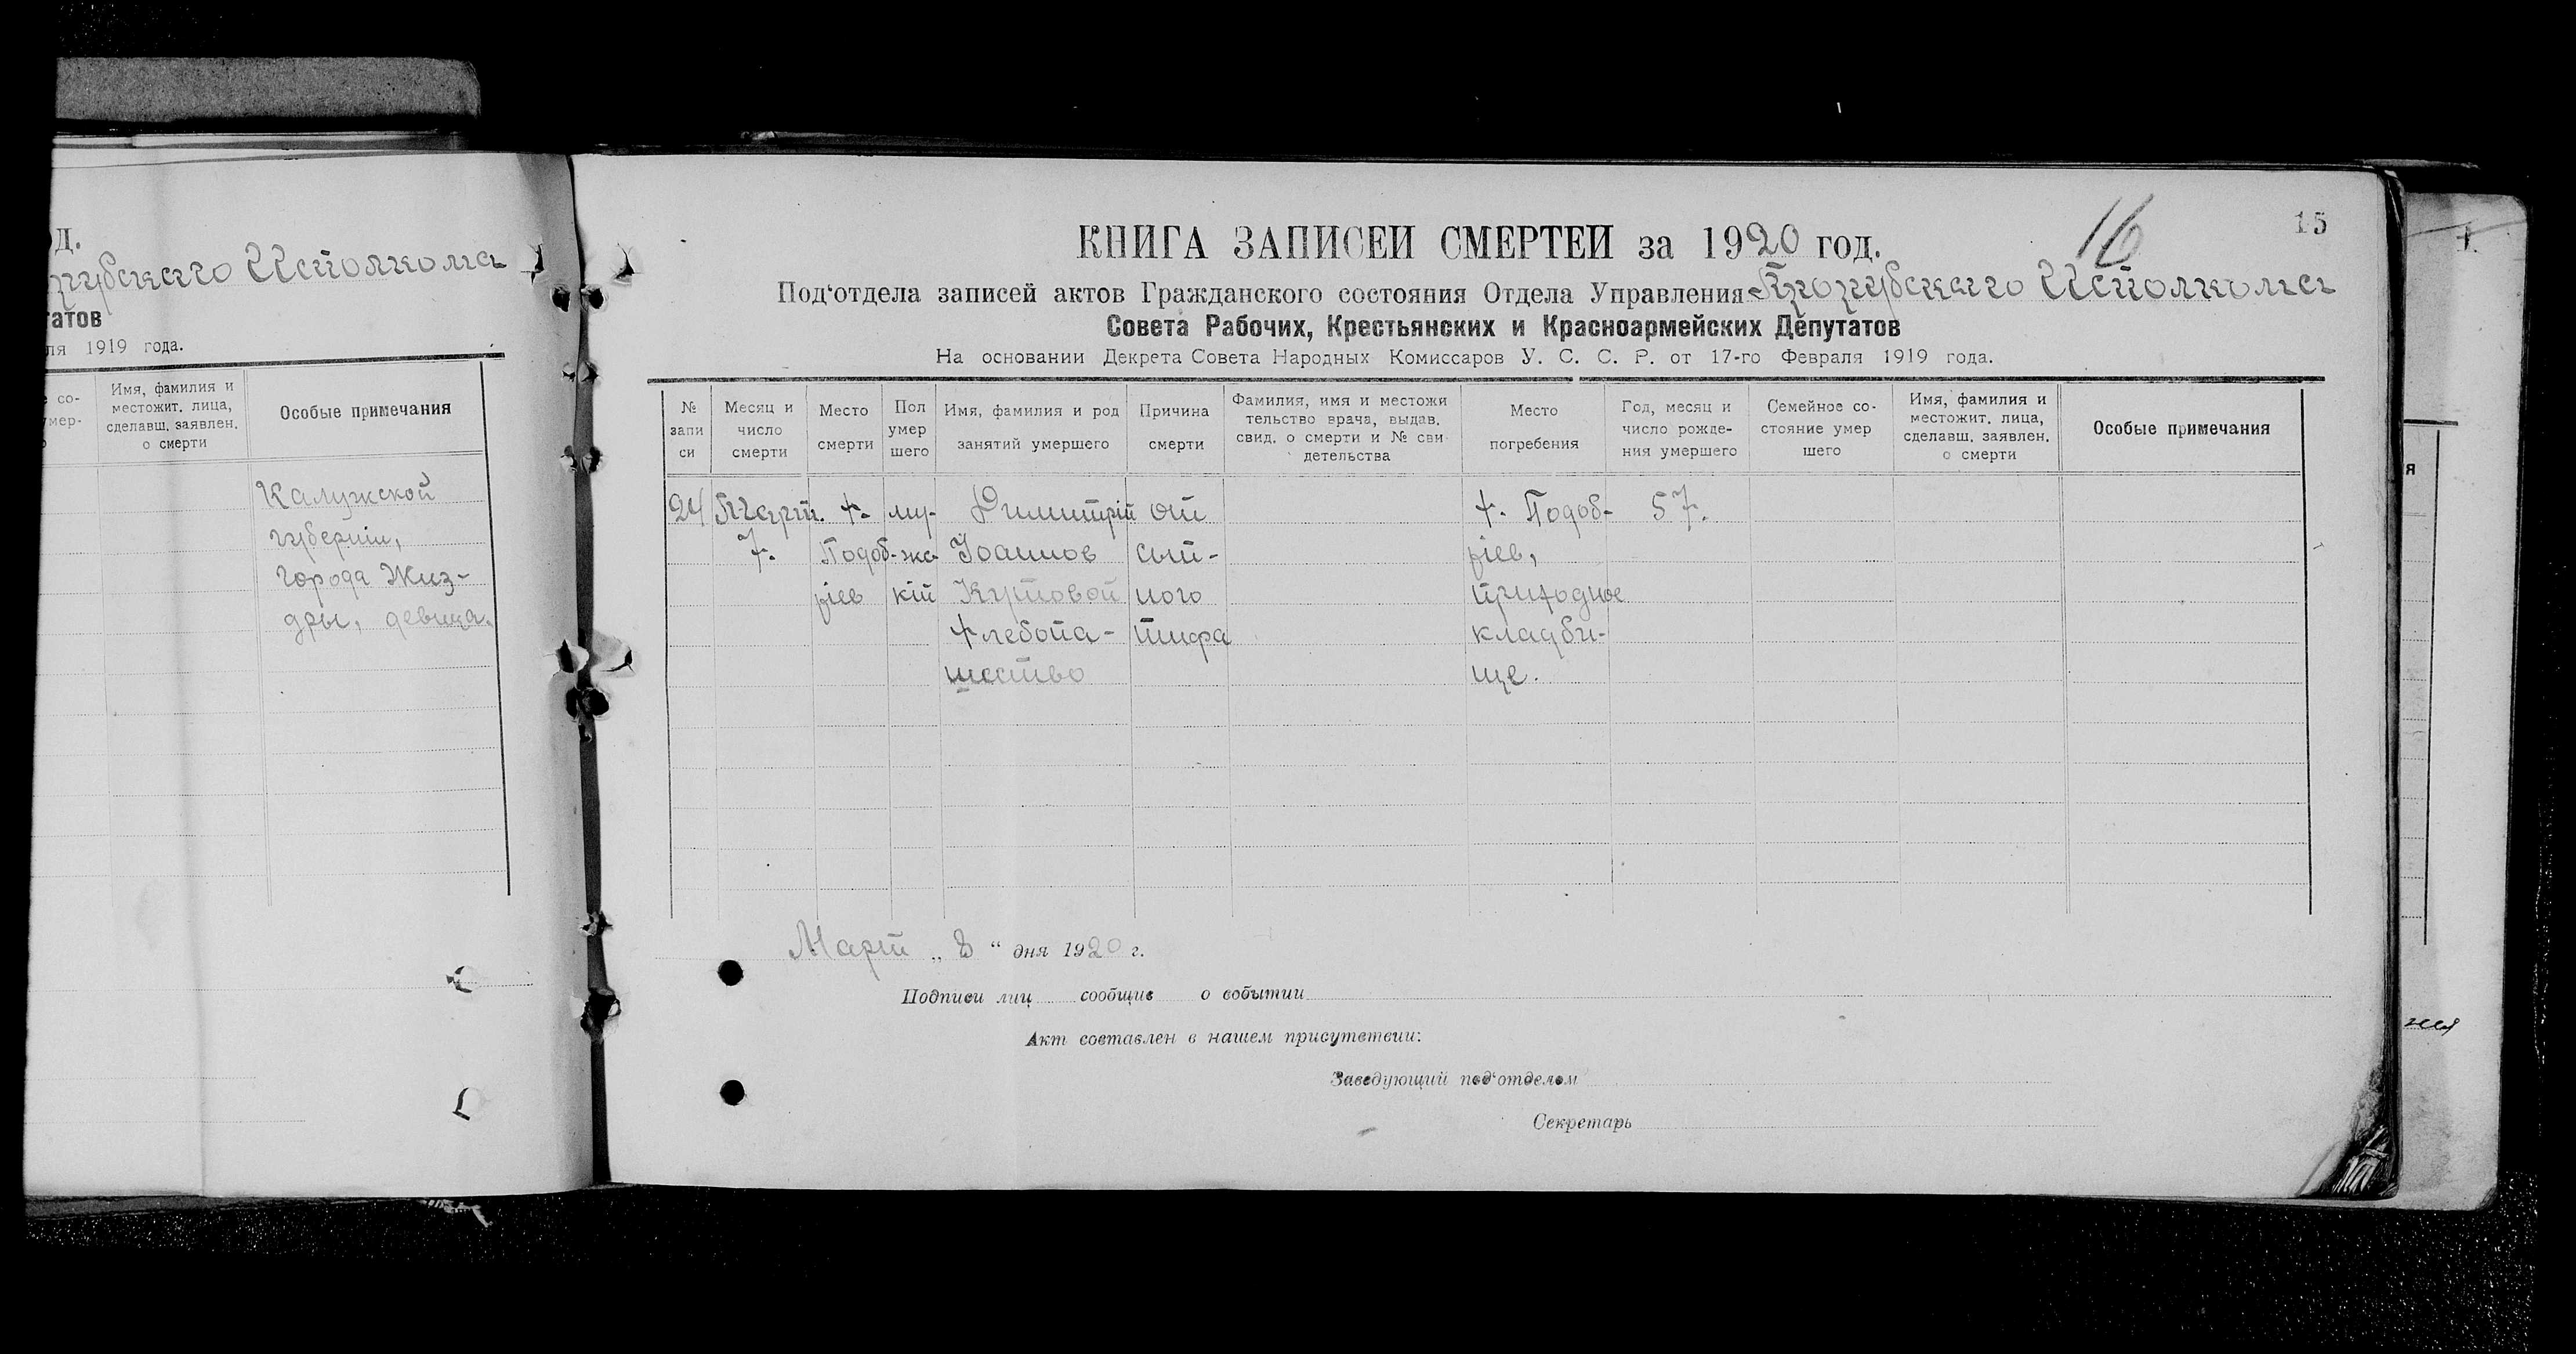 д.
Исполкома
татов
ля 1919 года.
е со-
умер-
о
Имя, фамилия и
местожит. лица,
сделавш. заявлен.
о смерти
Особые примечания
Калужской
губерніи,
города Жиз-
дры, девица.
15
16
КНИГА ЗАПИСЕЙ СМЕРТЕЙ за 1920 год.
Под‘отдела записей актов Гражданского состояния Отдела Управления Исполкома
Совета Рабочих, Крестьянских и Красноармейских Депутатов
На основании Декрета Совета Народных Комиссаров У. С. С. Р. от 17-го Февраля 1919 года.
№
запи
си
Месяц и
число
смерти
Место
смерти
Пол
умер
шего
Имя, фамилия и род
занятий умершего
Причина
смерти
Фамилия, имя и местожи
тельство врача, выдав.
свид. о смерти и № сви
детельства
Место
погребения
Год, месяц и
число рожде-
ния умершего
Семейное со-
стояние умер
шего
Имя, фамилия и
местожит. лица,
сделавш. заявлен.
о смерти
Особые примечания
24
Март.
7.
х.
Подоб-
ріев
му-
жс-
кій
Димитрій
Іоанов
Кутовой
хлебопа-
шество
от
сып-
ного
тифа
х. Подоб-
ріев,
приходное
кладби-
ще.
57.
Март „ 8 “ дня 1920 г.
Подписи лиц сообщив о событии
Акт составлен в нашем присутствии:
Заведующий под‘отделом
Секретарь